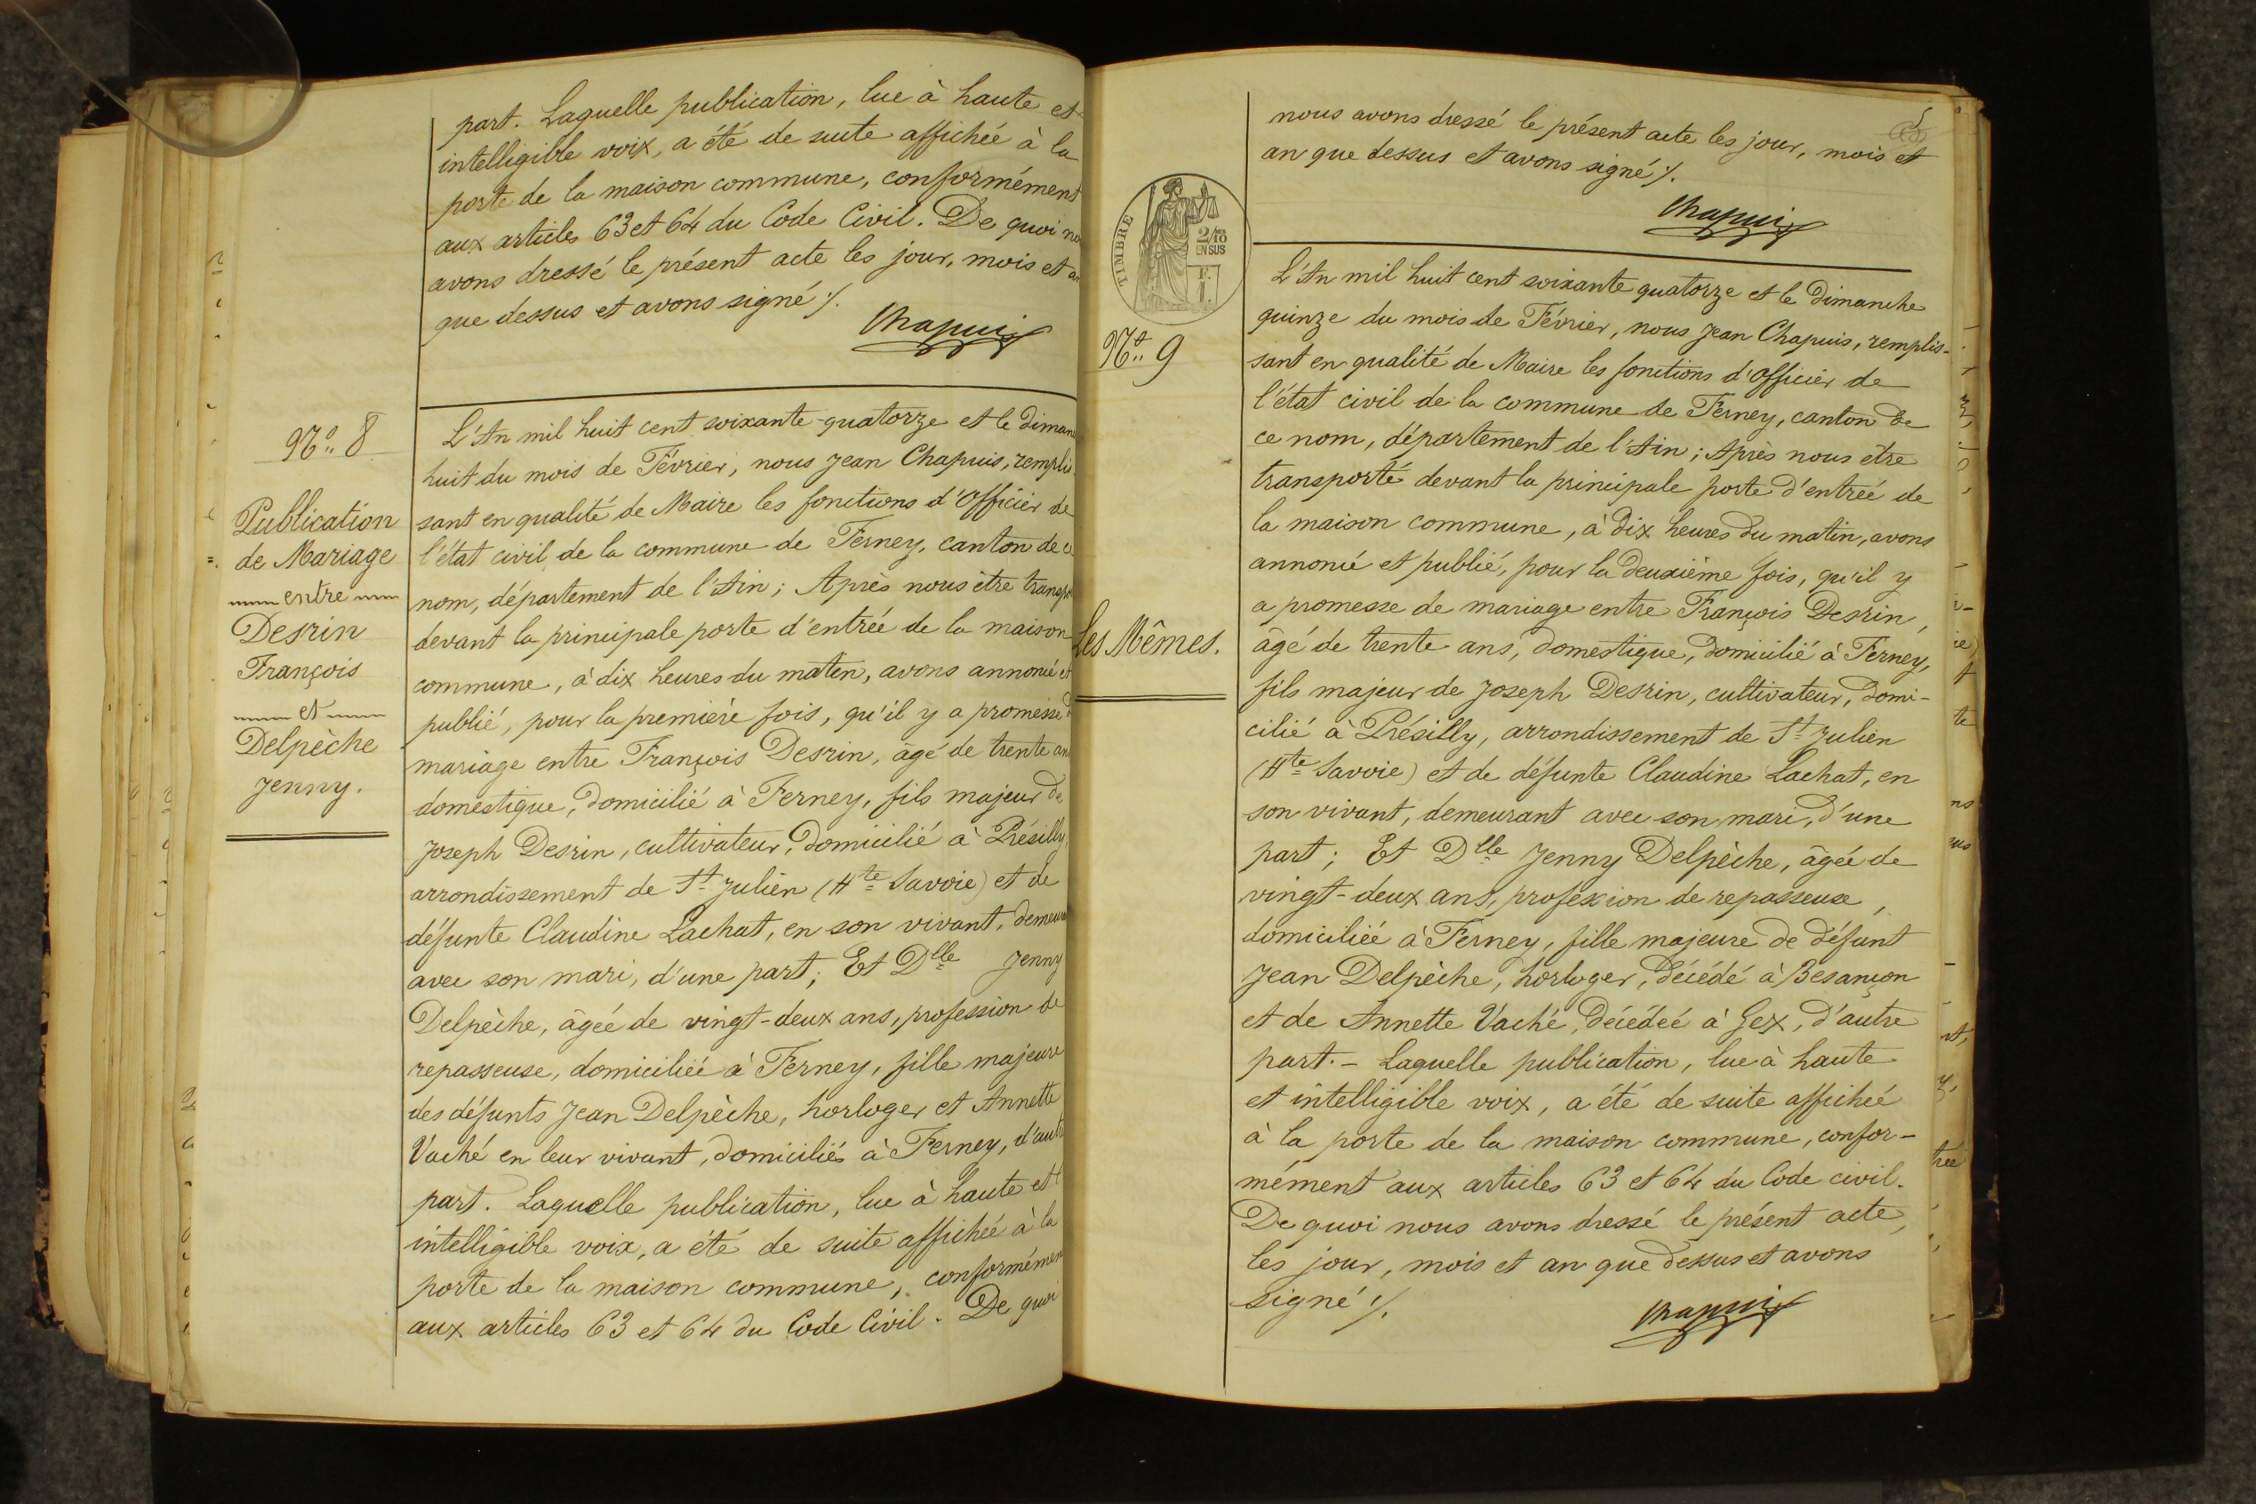 part. Laquelle publication, lue à haute et
intelligible voix, a été de suite affichée à la
porte de la maison commune, conformément
aux articles 63 et 64 du Code Civil. De quoi
avons dressé le présent acte les jour, mois et
que dessus et avons signé ./.
Chapuis
N° 8
Publication
de Mariage
entre
Desrin
François
et
Delpèche
Jenny.
L'An mil huit cent soixante-quatorze et le diman
huit du mois de Février, nous Jean Chapuis, remplis
sant en qualité de Maire les fonctions d'Officier de
l'état civil de la commune de Ferney, canton de
nom, département de l'Ain; Après nous être transpo
devant la principale porte d'entrée de la maison
commune, à dix heures du matin, avons annoncé et
publié, pour la première fois, qu'il y a promesse
mariage entre François Desrin, âgé de trente an
domestique, domicilié à Ferney, fils majeur de
Joseph Desrin, cultivateur, domicilié à Présilly,
arrondissement de St Julien (Hte Savoie) et de
défunte Claudine Lachat, en son vivant, demeura
avec son mari, d'une part; Et Dlle Jenny
Delpèche, âgée de vingt-deux ans, profession de
repasseuse, domiciliée à Ferney, fille majeure
des défunts Jean Delpèche, horloger et Annette
Vaché en leur vivant, domiciliés à Ferney, d'autr
part. Laquelle publication, lue à haute et
intelligible voix, a été de suite affichée à la
porte de la maison commune, conformémen
aux articles 63 et 64 du Code Civil. De quoi
5
nous avons dressé le présent acte les jour, mois et
an que dessus et avons signé ./.
Chapuis
TIMBRE
2/10
EN SUS
F.
1.
N° 9
Les Mêmes.
L'An mil huit cent soixante quatorze et le Dimanche
quinze du mois de Février, nous Jean Chapuis, remplis-
sant en qualité de Maire les fonctions d'Officier de
l'état civil de la commune de Ferney, canton de
ce nom, département de l'Ain; Après nous être
transporté devant la principale porte d'entrée de
la maison commune, à dix heures du matin, avons
annoncé et publié, pour la deuxième fois, qu'il y
a promesse de mariage entre François Desrin,
âgé de trente ans, domestique, domicilié à Ferney,
fils majeur de Joseph Desrin, cultivateur, domi-
cilié à Présilly, arrondissement de St Julien
(Hte Savoie) et de défunte Claudine Lachat, en
son vivant, demeurant avec son mari, d'une
part; Et Dlle Jenny Delpèche, âgée de
vingt-deux ans, profession de repasseuse,
domiciliée à Ferney, fille majeure de défunt
Jean Delpèche, horloger, décédé à Besançon
et de Annette Vaché, décédée à Gex, d'autre
part. - Laquelle publication, lue à haute
et intelligible voix, a été de suite affichée
à la porte de la maison commune, confor-
mément aux articles 63 et 64 du Code civil.
De quoi nous avons dressé le présent acte,
les jour, mois et an que dessus et avons
signé ./.
Chapuis